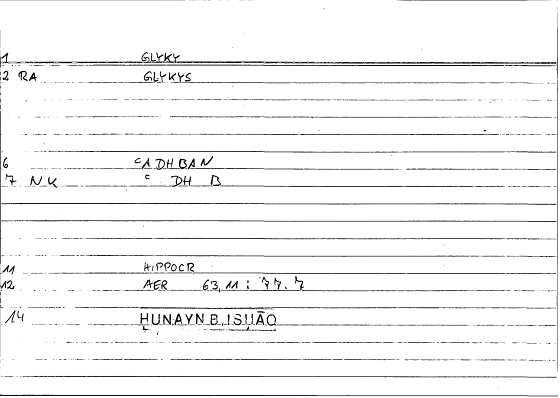 1 GLYKY
2 RA GLYKYS
6 ʿADHBAN
7 NK ʿ DH B
11 HIPPOCR
12 AER 63,11 : 77.7
14 ḤUNAYN B. ISḤĀQ